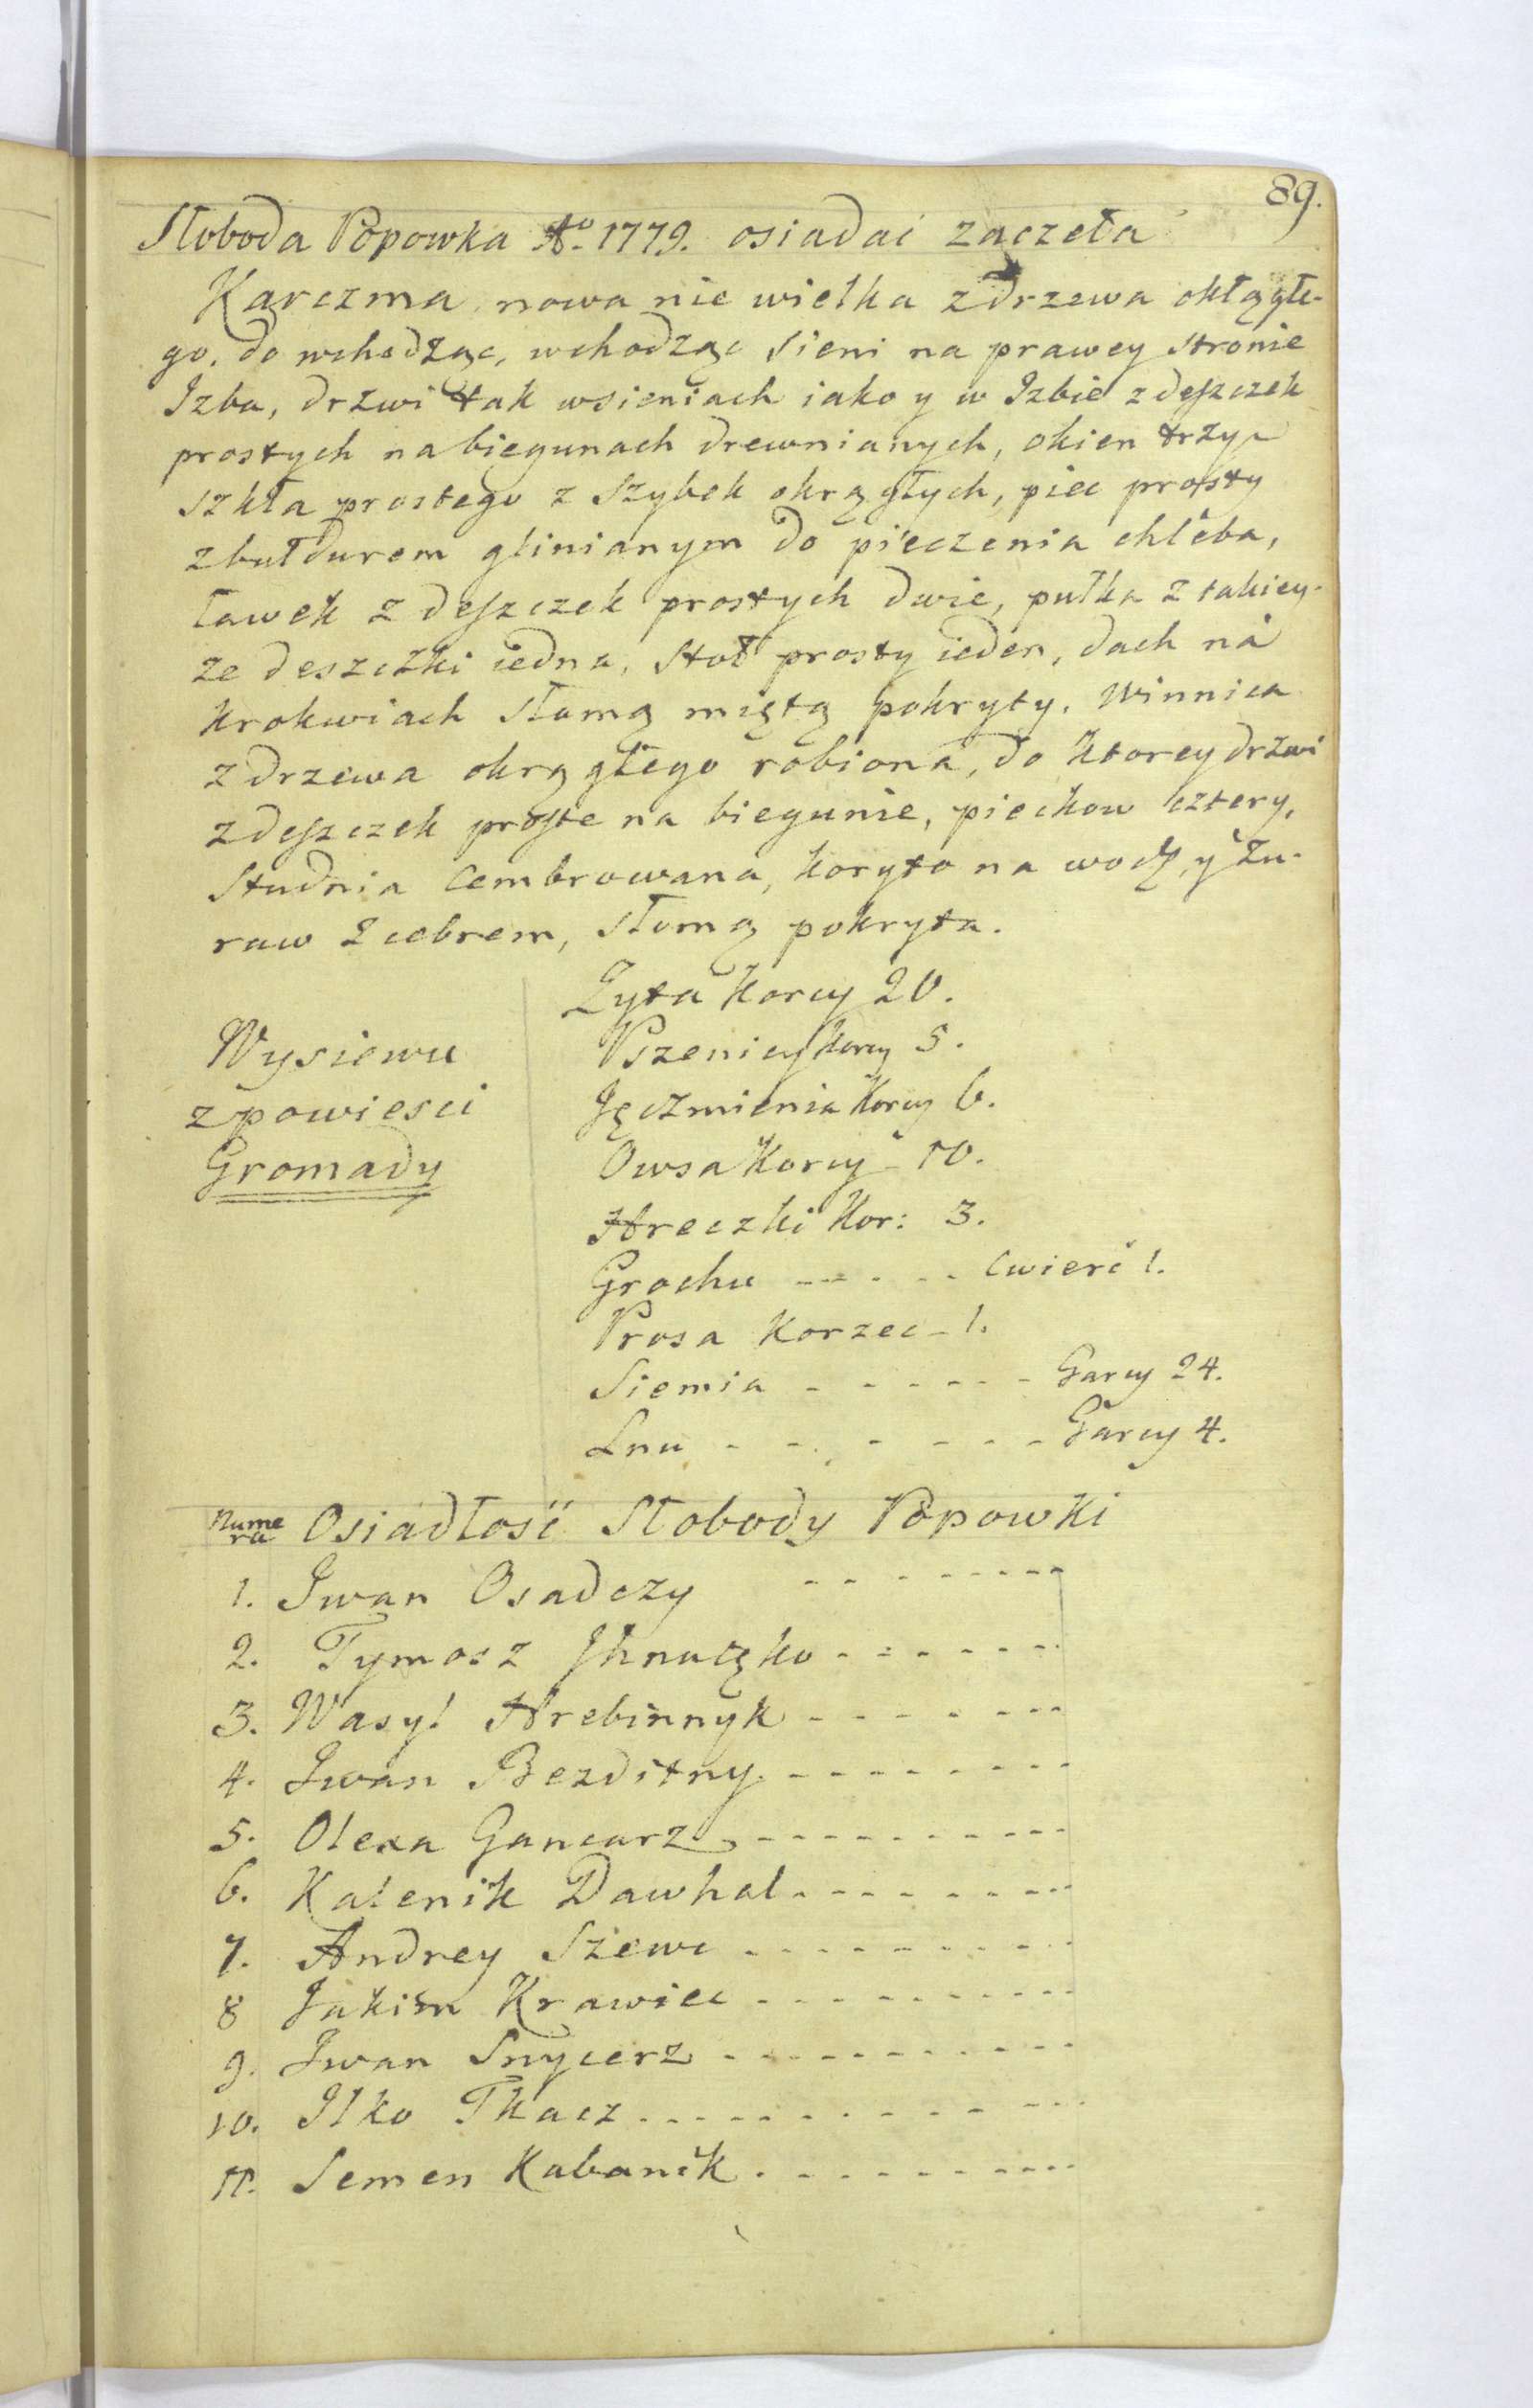 89.
Słoboda Popowka Aº. 1779. osiadać zaczeła
Karczma nowa nie wielka z drzewa okłągłe-
go. do wchodząc, wchodząc Sieni na prawey stronie
Izba, drzwi tak wsieniach iako y w Izbie z deszczek
prostych na biegunach drewnianych, okien trzy z
szkła prostego z Szybek okrągłych, piec prosty
z bułdurem glinianym do pieczenia chleba,
ławek z deszczek prostych dwie, pułka z takiey-
ze deszczki iedna, Stoł prosty ieden, dach na
krokwiach słomą miętą pokryty. Winnica
z drzewa okrągłego robiona, do ktorey drzwi
z deszczek proste na biegunie, pieckow cztery,
Studnia Cembrowana, koryto na wodę, y żu-
raw z cebrem, słomą pokryta.
Wysiewu
z powiesci
Gromady
Zyta Korcy 20.
Pszenicy Korcy 5.
Jęczmienia Korcy 6.
Owsa Korcy - 10.
Hreczki Kor: 3.
Grochu - - - - - Cwierć 1.
Prosa Korzec - 1.
Siemia - - - - - - Garcy 24.
Lnu - - - - - - - Garcy 4.
Numera Osiadłość Słobody Popowki
1. Iwan Osadczy - - - - - - - -
2. Tymosz - - - - - - -
3. Wasyl Hrebinnyk - - - - - - -
4. Iwan Bezditny - - - - - - - -
5. Olexa Gancarz - - - - - - - - -
6. Kalenik Dawhal - - - - - - - -
7. Andrey Szewc - - - - - - - - -
8 Jakim Krawiec - - - - - - - - -
9. Iwan Snycerz - - - - - - - - - -
10. Ilko Tkacz - - - - - - - - - - -
11. Semen Kabanik - - - - - - - - -